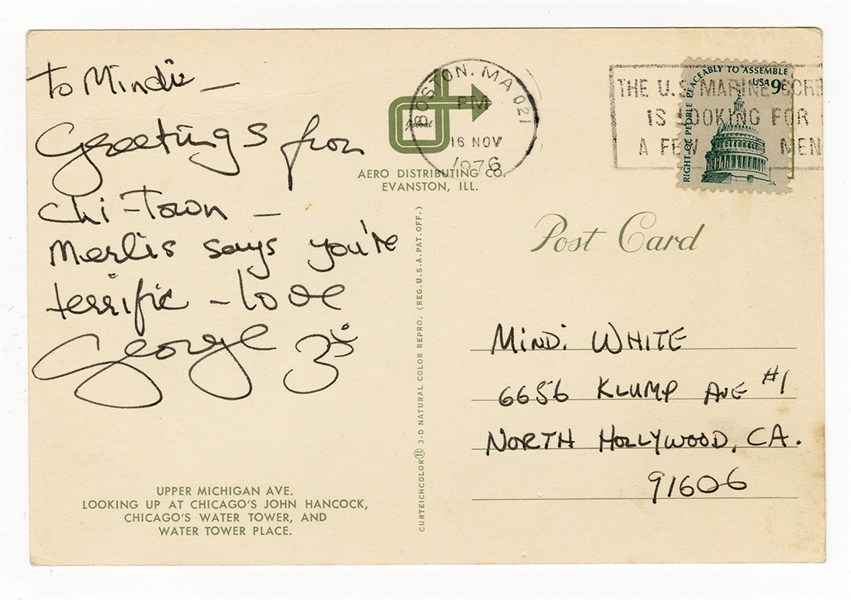 To Mindi —
Greetings from
Chi-Town —
Merlis says you're
terrific — love
George
AERO DISTRIBUTING CO.
EVANSTON, ILL.
BOSTON, MA 021
PM
16 NOV
1976
THE U.S. MARINE CORPS
IS LOOKING FOR
A FEW MEN
RIGHT OF PEOPLE PEACEABLY TO ASSEMBLE
USA 9c
Post Card
CURTEICHCOLOR® 3-D NATURAL COLOR REPRO. (REG. U.S.A. PAT. OFF.)
Mindi White
6656 Klump Ave #1
North Hollywood, CA.
91606
UPPER MICHIGAN AVE.
LOOKING UP AT CHICAGO'S JOHN HANCOCK,
CHICAGO'S WATER TOWER, AND
WATER TOWER PLACE.